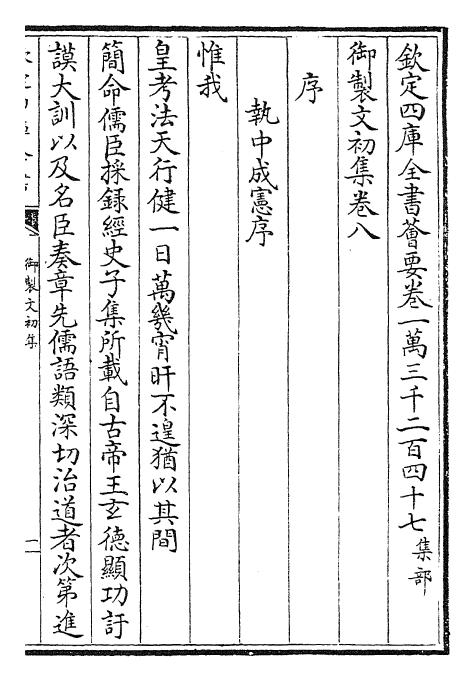 欽定四庫全書薈要卷一萬三千二百四十七集部
御製文初集卷八
序
執中成憲序
惟我
皇考法天行健一日萬幾宵旰不遑猶以其間
簡命儒臣採錄經史子集所載自古帝王玄德顯功訏
謨大訓以及名臣奏章先儒語類深切治道者次第進
御製文初集
一